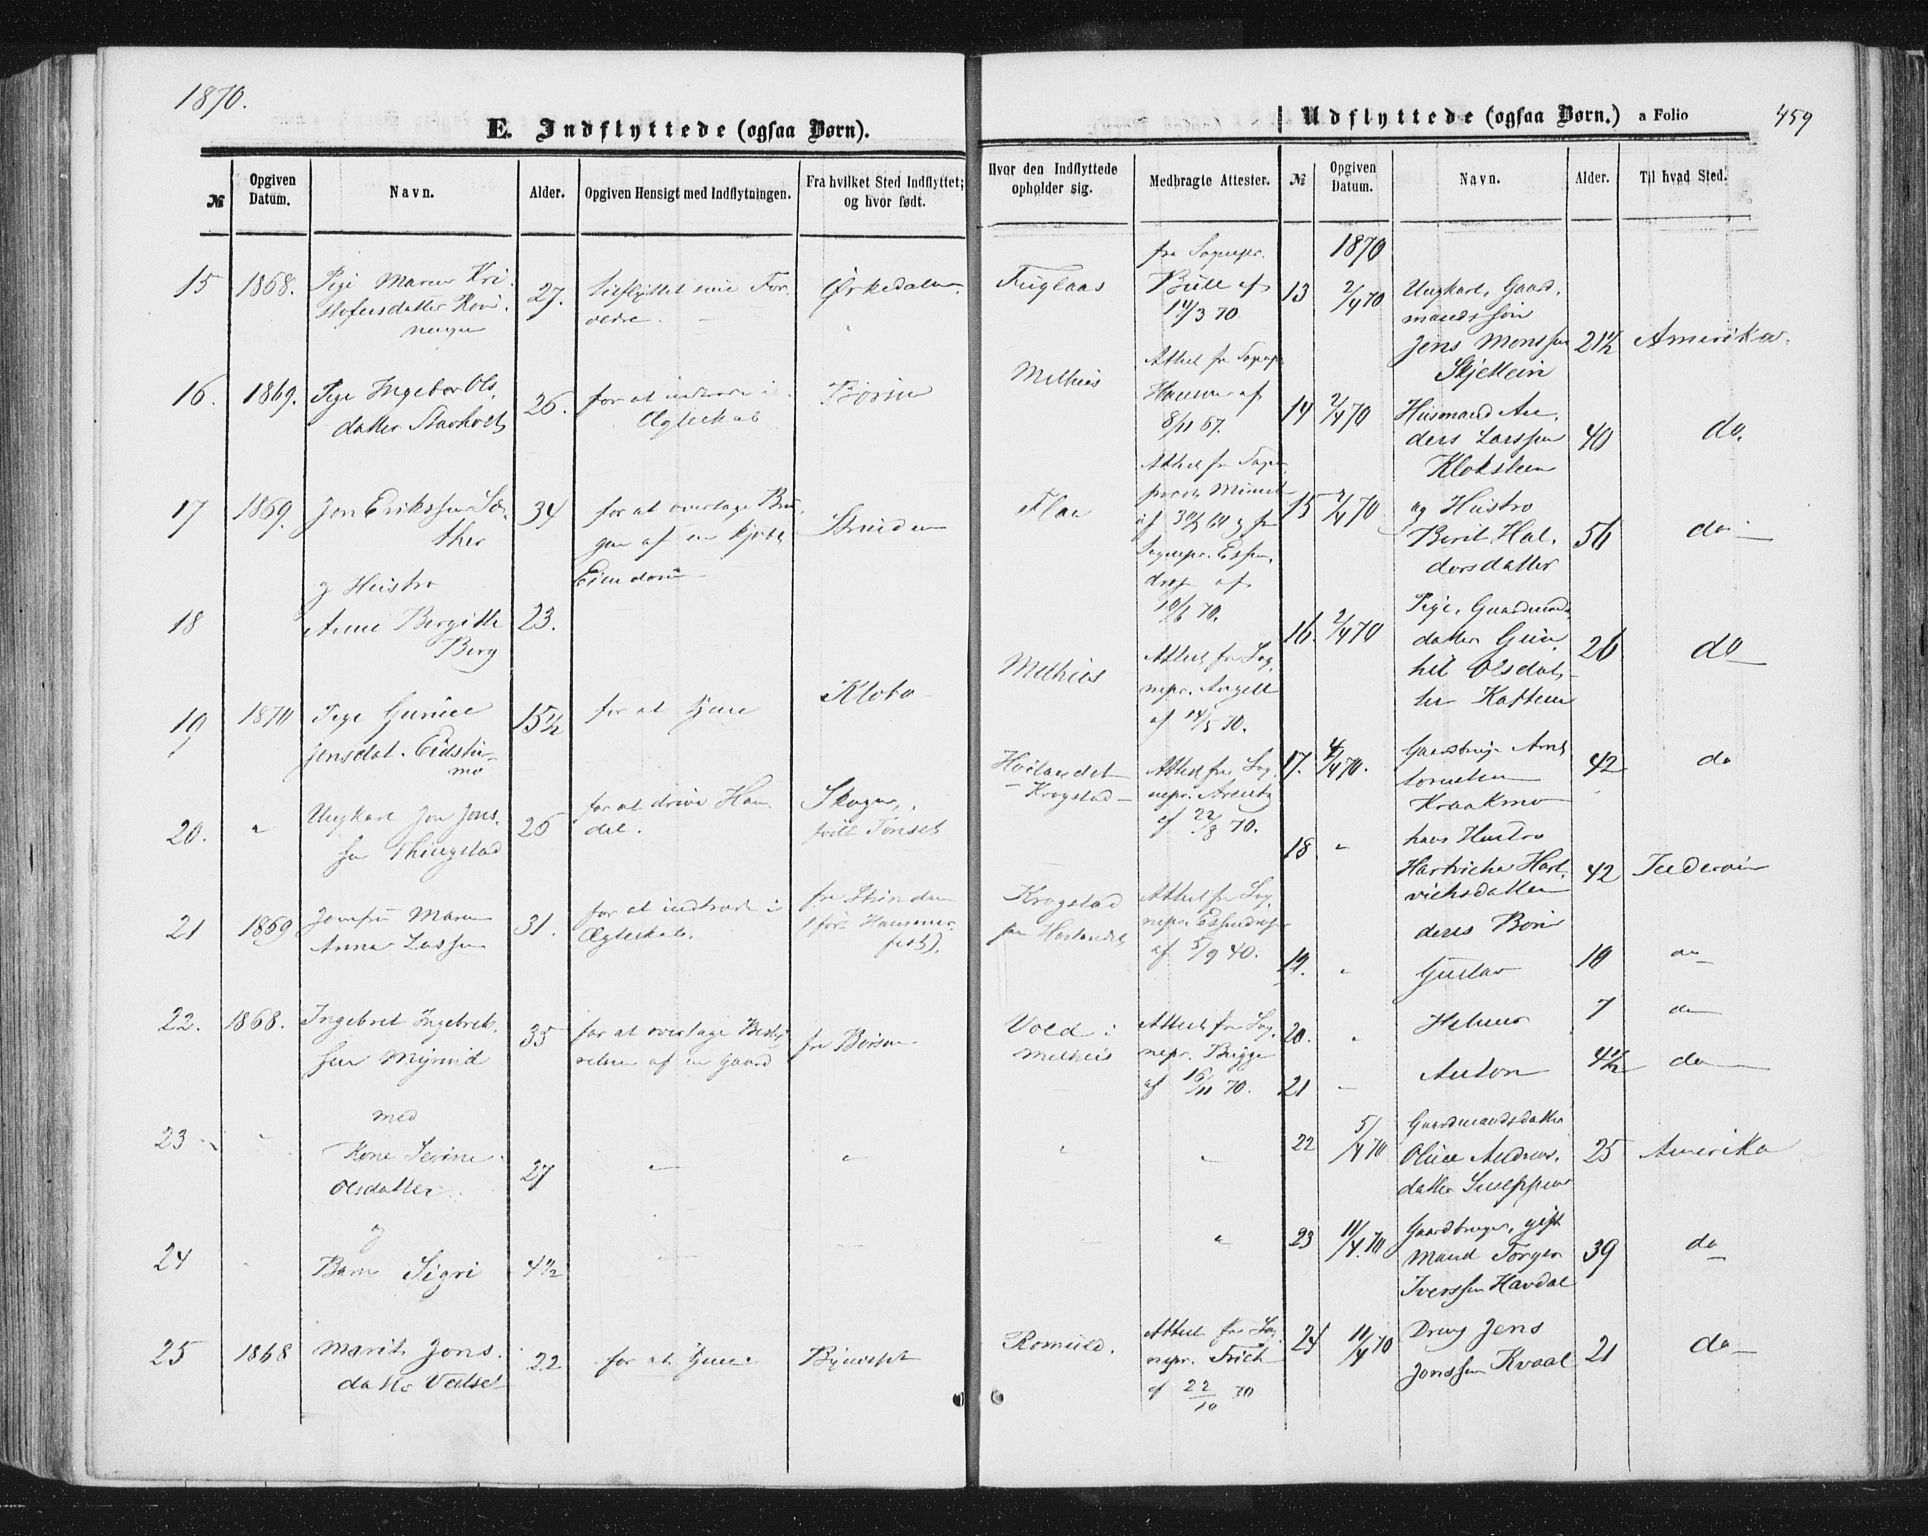 1870.
E. Indflyttede (ogsaa Børn).
Udflyttede (ogsaa Børn.) a Folio 459
№
Opgiven Datum.
Navn.
Alder.
Opgiven Hensigt med Indflytningen.
Fra hvilket Sted Indflyttet; og hvor født.
Hvor den Indflyttede opholder sig.
Medbragte Attester.
15 1868. Pige Maren Kri-
stofersdatter
27.
tilflyttet sine For-
ældre.
Ørkedalen.
Fuglaas
fra Sognepr.
Bull af
14/3 70.
16. 1869. Pige Ingebor Ols-
datter
26.
for at indtræde i
Ægteskab
Børsen
Melhus
Attest fra Sognepr.
Hansen af
8/11 67.
17 1869. Jon Erikssen Sæ-
ther
34
for at overtage Bru-
gen af en kjøbt
Eiendom
Strinden
Flaa
Attest fra
af 30/5 60 og fra
Sognepr. Essen-
drop af
10/6 70.
18
og Hustro
Anne Bergitte
Berg
23.
19 1870 Pige Gunnil
Jensdat. Eidsmo
15½
for at tjene
Klæbo
Melhus
Attest fra Sog-
nepr. Angell
af 14/5 70.
20. " Ungkarl Jon Jons-
sen Thingstad
26
for at drive Han-
del.
Skogn,
født Tønset
Høilandet
Krogstad
Attest fra Sog-
nepr. Arentz
af 22/8 70.
21 1869 Jomfru Maren
Anna Lassen
31.
for at indtræde i
Ægteskab.
fra Strinden
(født Hammer-
fest).
Krogstad
paa Høilandet
Attest fra Sog-
nepr. Essendrop
af 5/9 70.
22. 1868. Ingebret Ingebret-
sen Myrmid
35
for at overtage Besty-
relsen af en Gaard
fra Børsen
Vold i
Melhus
Attest fra Sog-
nepr. Brigge
af 16/11 70.
23 "
med
Kone Serine
Olsdatter
27
"
"
"
"
24 "
og
Barn Sigri
4½
"
"
25 1868 Marit Jons-
datter
22
for at tjene
Bynesset
Romuld.
Attest fra Sog-
nepr. Frich
af 22/10 70
№
Opgiven Datum.
Navn.
Alder.
Til hvad Sted.
1870
13 2/4 70 Ungkarl, Gaard-
mandssøn
Jens Monssen
Skjetlein
21½ Amerika.
14 2/4 70 Husmand An-
ders Larssen
Klokstein
40 do.
15 2/4 70 og Hustro
Berit Hal-
dorsdatter
56 do
16. 2/4 70 Pige, Gaardmands-
datter Gun-
hil Olsdat-
ter
26 do
17. 4/4 70. Gaardbrug. Arnt
Kraakmo
42 do
18 " hans Hustro
Hartvicha Hart-
vichsdatter
42 Inderøen
deres Børn
19. " Gustav 10 do
20. " Helmer 7 do
21 " Anton 4½ do
22 5/4 70 Gaardmandsdatter
Oline Anders-
datter
25 Amerika
23 11/4 70 Gaardbruger, gift
Mand Torger
Iverssen Havdal
39 do
24 11/4 70 Dreng Jens
Jonssen Kvaal
21 do